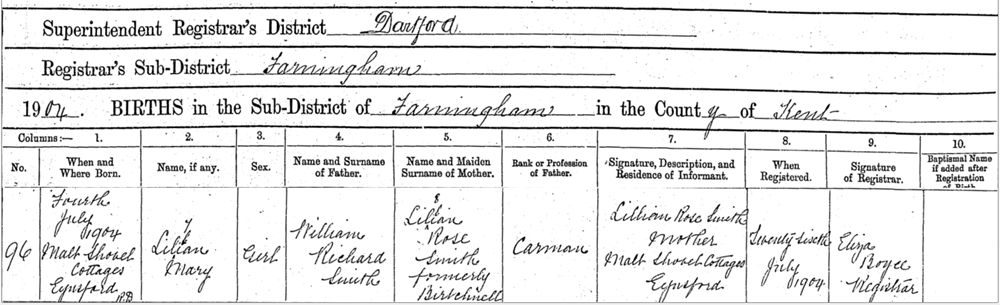 Superintendent Registrar's District Dartford
Registrar's Sub-District Farningham
1904. BIRTHS in the Sub-District of Farningham in the County of Kent
Columns:— 1. 2. 3. 4. 5. 6. 7. 8. 9. 10.
No. When and Where Born. Name, if any. Sex. Name and Surname of Father. Name and Maiden Surname of Mother. Rank or Profession of Father. Signature, Description, and Residence of Informant. When Registered. Signature of Registrar. Baptismal Name if added after Registration of Birth
96
Fourth
July
1904
Malt Shovel
Cottages
Eynsford
R.D.
Lilian
Mary
Girl
William
Richard
Smith
Lilian
Rose
Smith
formerly
Birtchnell
Carman
Lillian Rose Smith
Mother
Malt Shovel Cottages
Eynsford
Twenty sixth
July
1904
Eliza
Boyce
Registrar